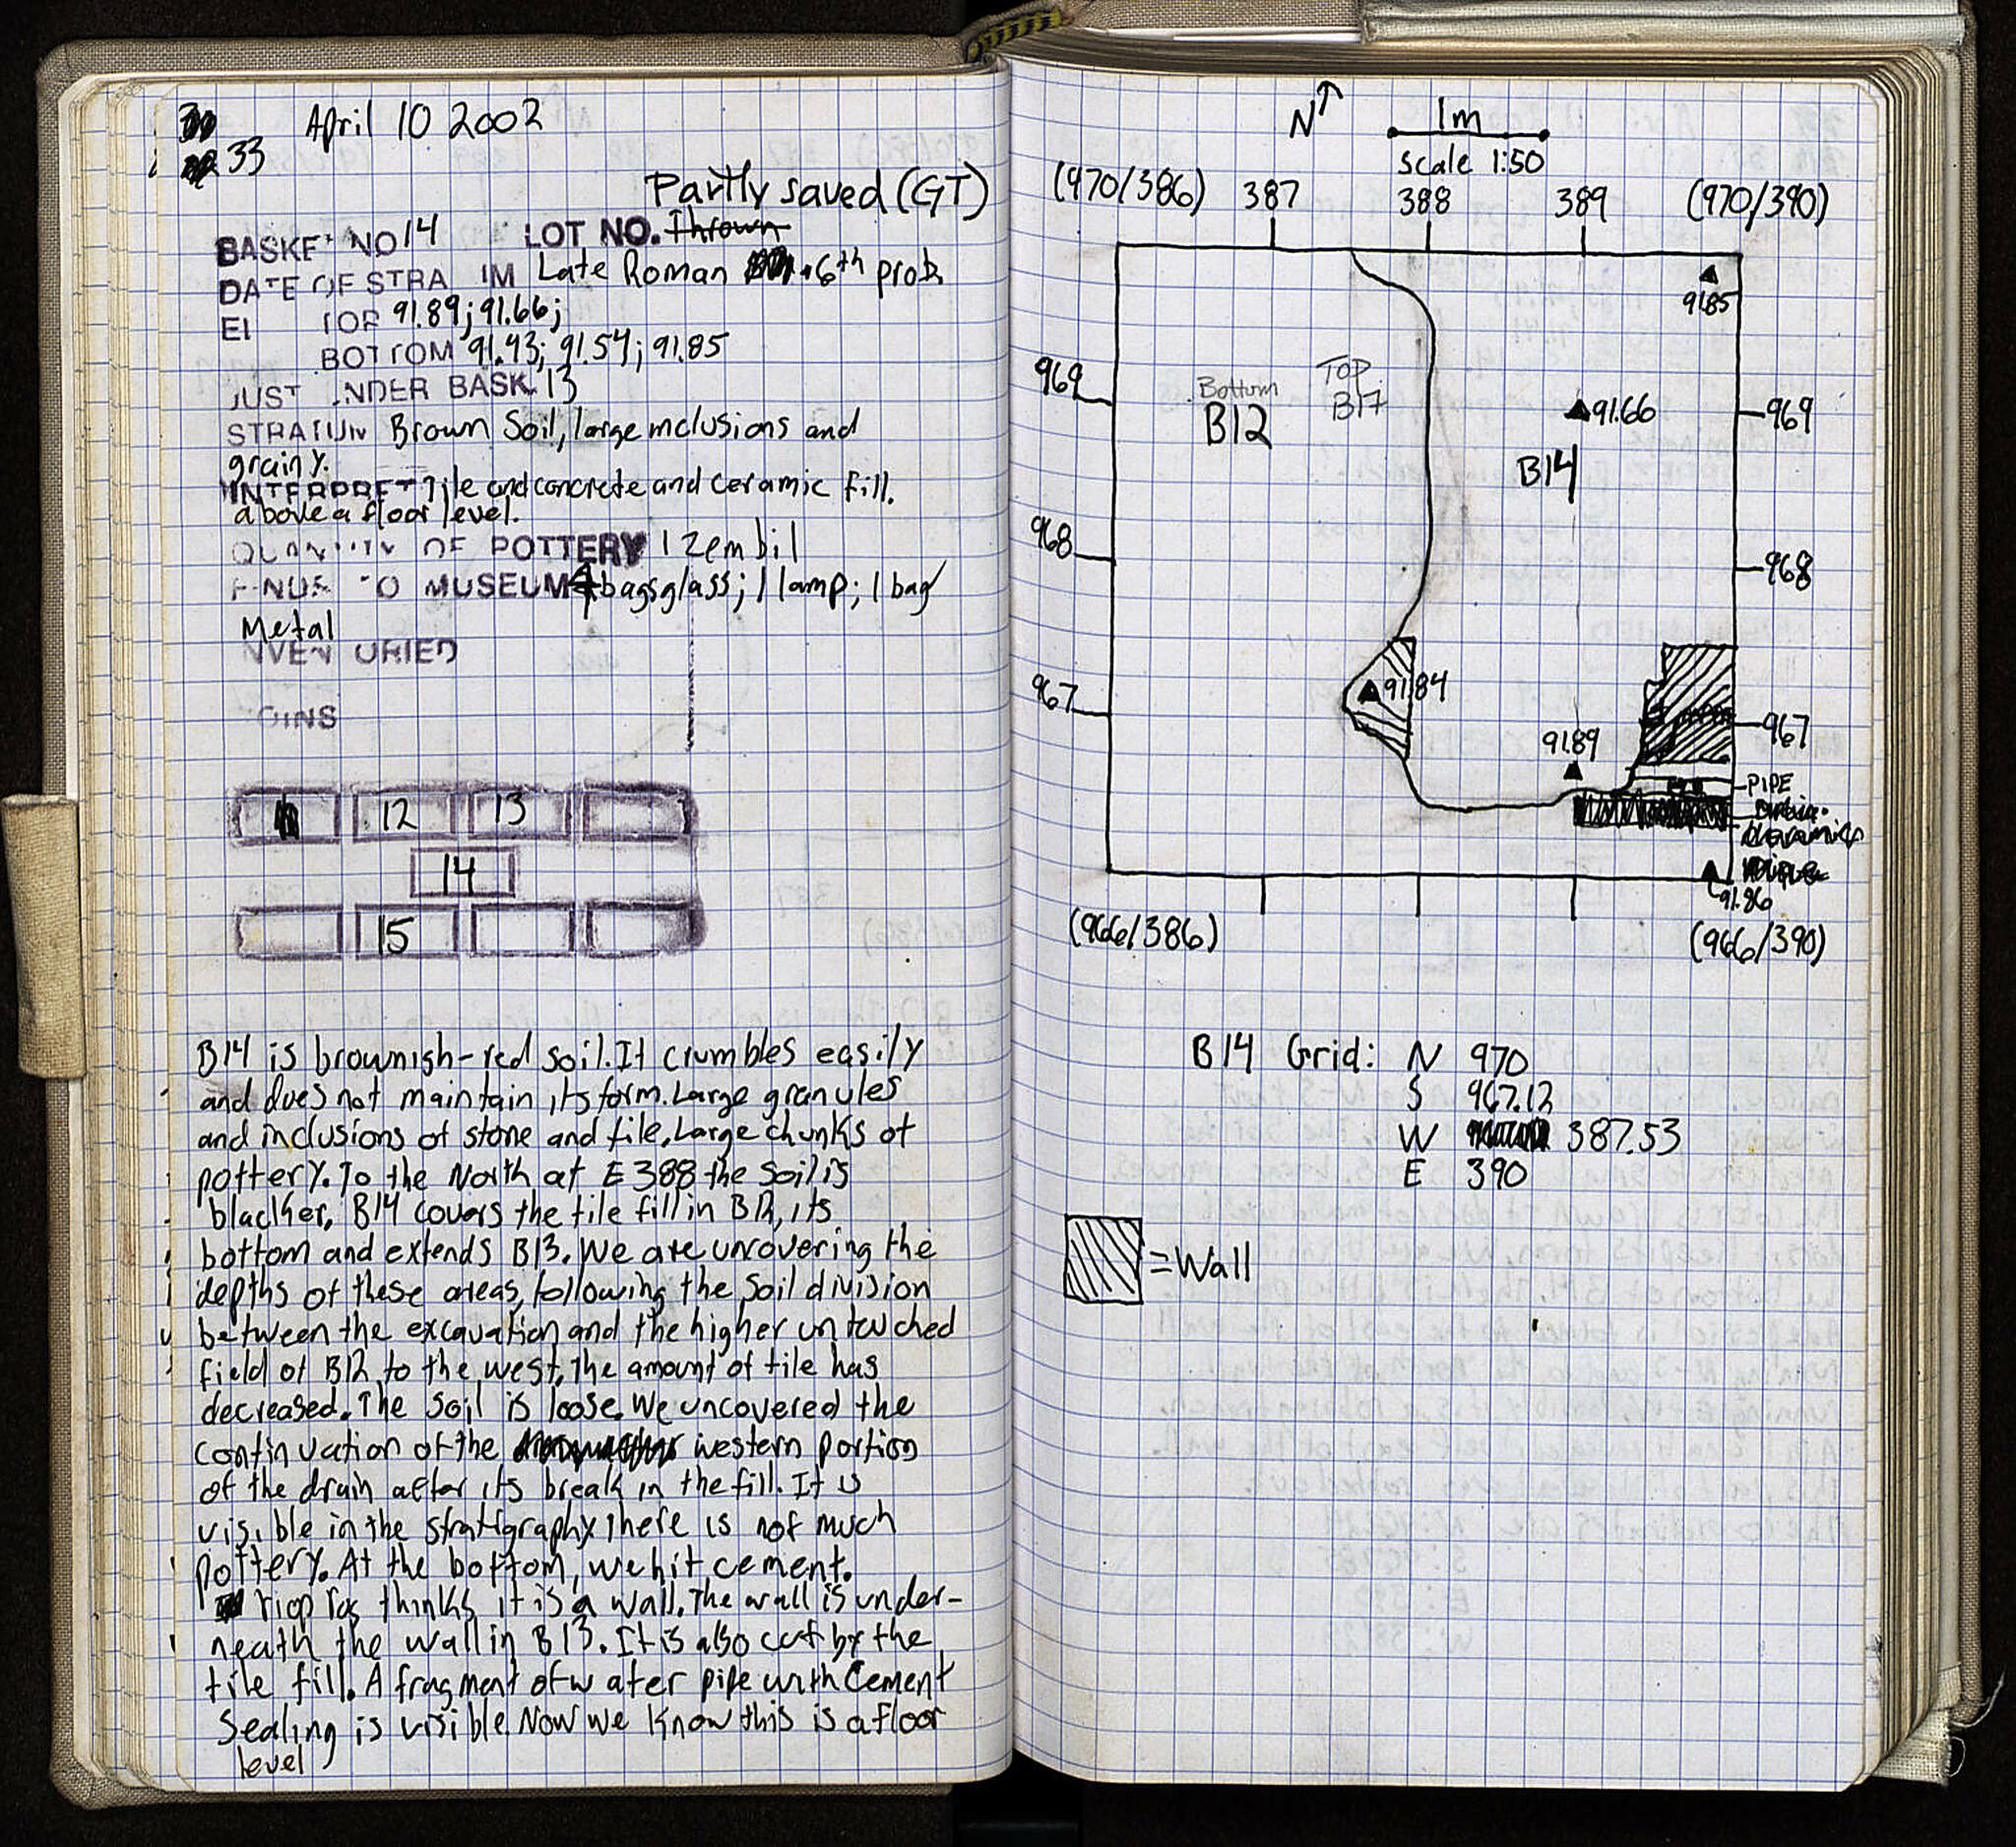 33 April 10 2002
Partly saved (GT)
BASKET NO 14 LOT NO. Thrown
DATE OF STRATUM Late Roman 6th prob
EL TOP 91.89; 91.66;
BOTTOM 91.43; 91.54; 91.85
JUST UNDER BASK. 13
STRATUM Brown Soil, large inclusions and
grainy.
INTERPRET Tile and concrete and ceramic fill.
above a floor level.
QUANTITY OF POTTERY 1 zembil
FINDS TO MUSEUM 4 bags glass; 1 lamp; 1 bag
Metal
INVENTORIED
COINS
12 13
14
15
B14 is brownish-red soil. It crumbles easily
and does not maintain its form. Large granules
and inclusions of stone and tile. Large chunks of
pottery. To the North at E388 the soil is
blacker. B14 covers the tile fill in B12, its
bottom and extends B13. We are uncovering the
depths of these areas, following the soil division
between the excavation and the higher untouched
field of B12 to the west, the amount of tile has
decreased. The soil is loose. We uncovered the
continuation of the western portion
of the drain after its break in the fill. It is
visible in the stratigraphy. There is not much
pottery. At the bottom, we hit cement.
thinks it is a wall. The wall is under-
neath the wall in B13. It is also cut by the
tile fill. A fragment of water pipe with Cement
Sealing is visible. Now we know this is a floor
level
N 1m
scale 1:50
(970/386) 387 388 389 (970/390)
91.85
969 Bottom B12 Top B17 91.66 969
B14
968 968
967 91.84 967
91.89
PIPE
91.86
(966/386) (966/390)
B14 Grid: N 970
S 967.12
W 387.53
E 390
=Wall